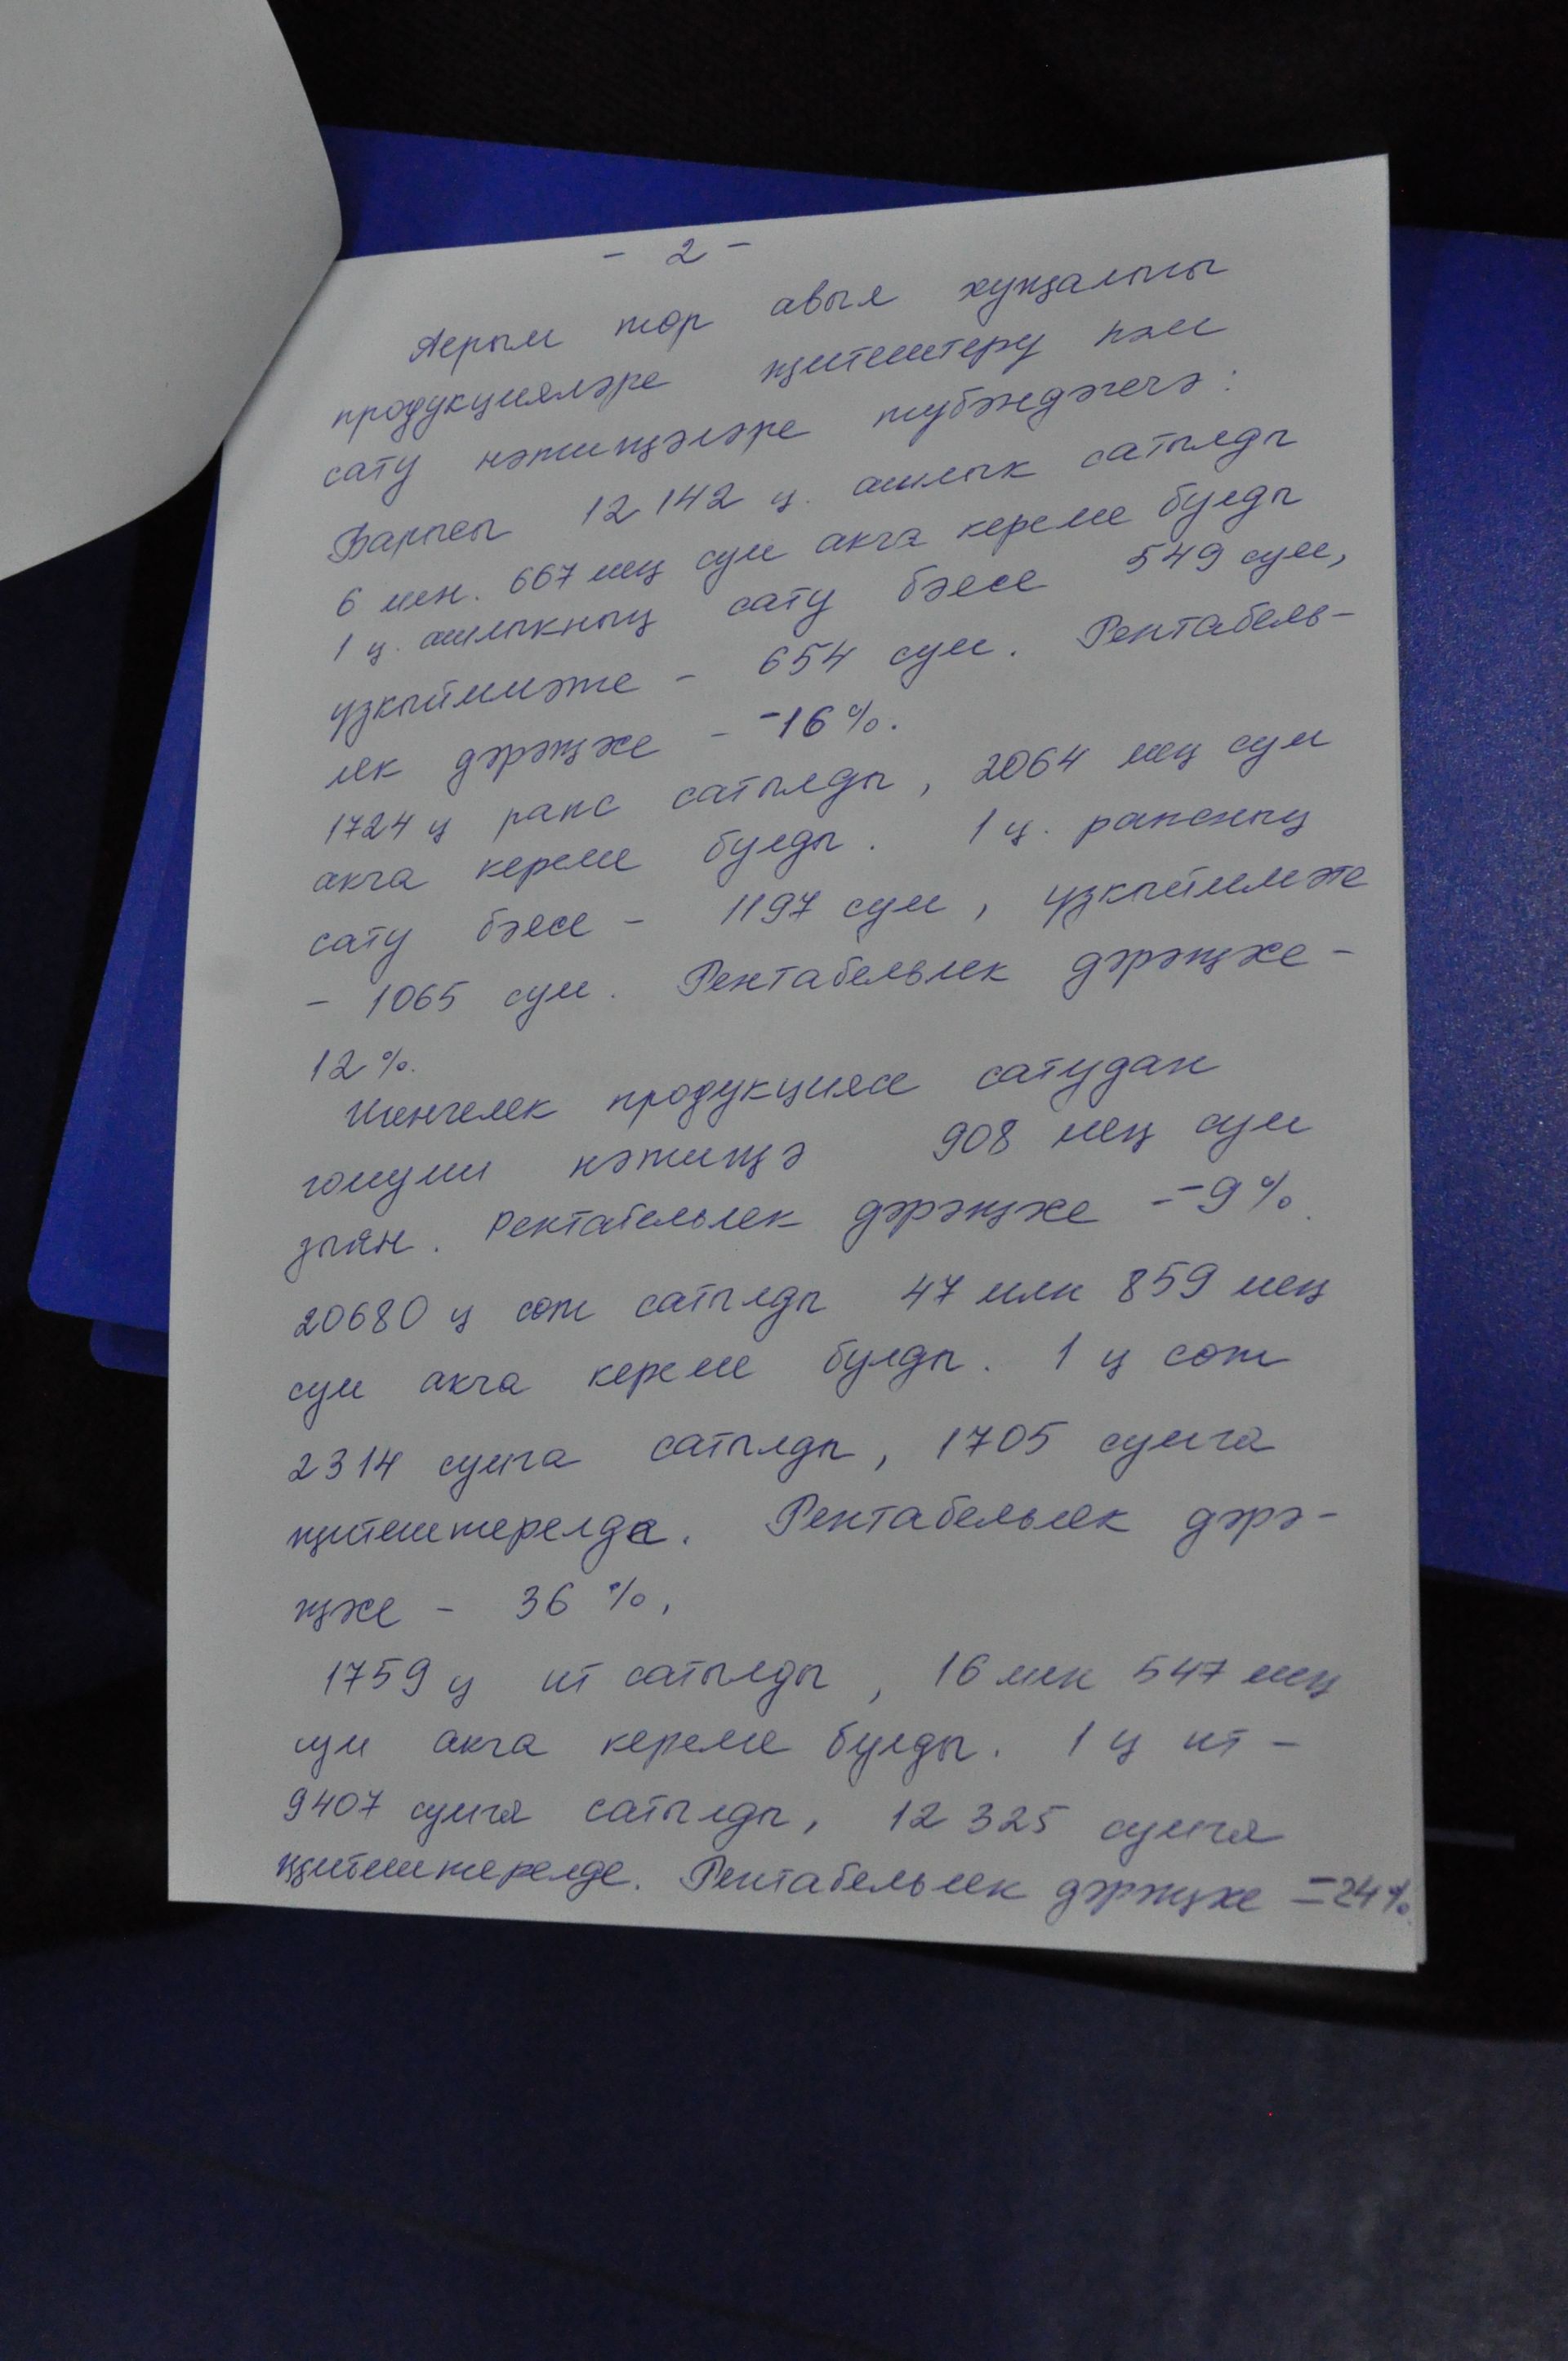 - 2 -
Аерым төр авыл хуҗалыгы
продукцияләре җитештерү һәм
сату нәтиҗәләре түбәндәгечә:
Барысы 12 142 ц. ашлык сатылды
6 млн. 667 мең сум акча кереме булды
1 ц. ашлыкның сату бәясе 549 сум,
үзкыйммәте - 654 сум. Рентабель-
лек дәрәҗәсе - -16%.
1724 ц рапс сатылды, 2064 мең сум
акча кереме булды. 1 ц. рапсның
сату бәясе - 1197 сум, үзкыйммәте
- 1065 сум. Рентабельлек дәрәҗәсе -
12%.
Игенчелек продукциясе сатудан
гомуми нәтиҗә 908 мең сум
зыян. Рентабельлек дәрәҗәсе - -9%.
20680 ц сөт сатылды 47 млн 859 мең
сум акча кереме булды. 1 ц сөт
2314 сумга сатылды, 1705 сумга
җитештерелде. Рентабельлек дәрә-
җәсе - 36 %.
1759 ц ит сатылды, 16 млн 547 мең
сум акча кереме булды. 1 ц ит -
9407 сумга сатылды, 12 325 сумга
җитештерелде. Рентабельлек дәрәҗәсе - -24%.